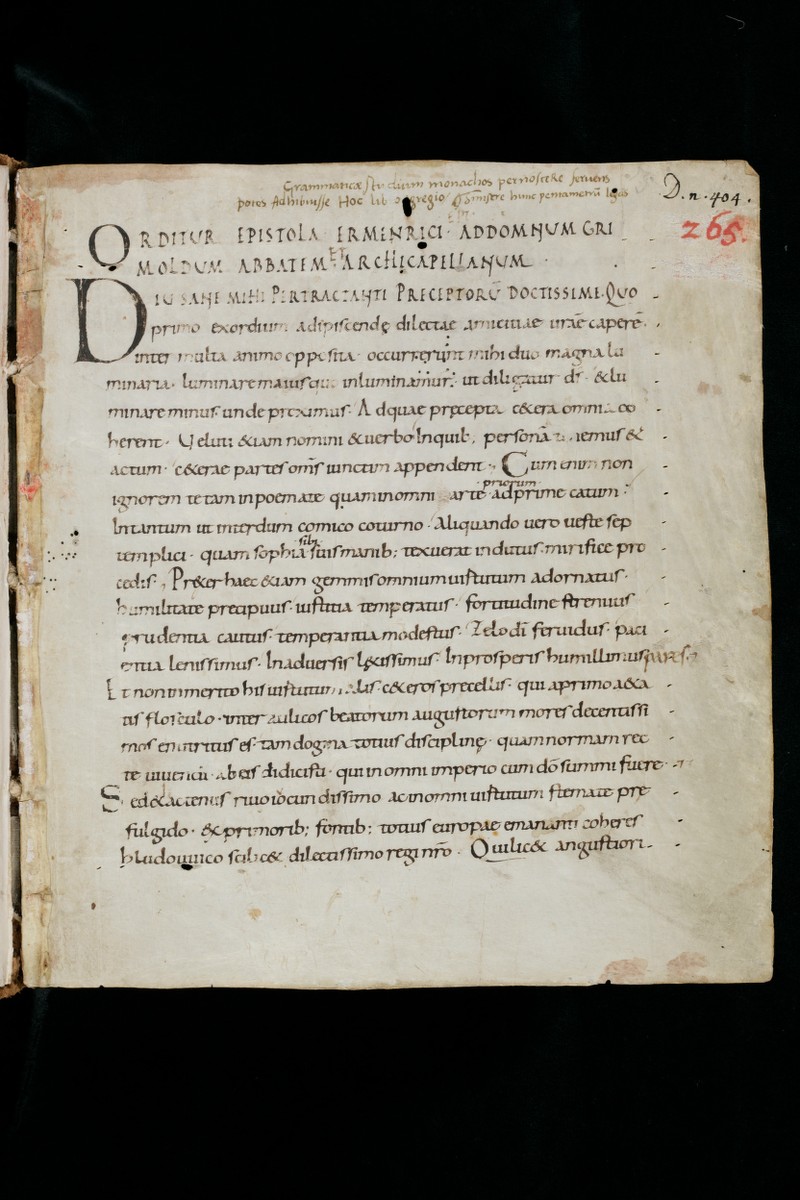 Grammaticæ studium monachos pernoscere feruens
potes Adhibuisse Hoc lib hunc pentametrū
D. n. 404.
265.
ORDITUR EPISTOLA ERMENRICI ADDOMNUM GRI
MOLDUM ABBATEM ET ARCHICAPELLANUM
DIU SANE MIHI PERTRACTANTI PRECEPTORŪ DOCTISSIME. QUO
primo exordium adipiscendę dilectae amicitiae uræ capere.
inter multa animo opposita. occurrerunt mihi duo magna lu
minaria. luminare maius in ut diligatur ds. &lu
minare minus unde proximus. Adquae pręcepta c&era omnia co
herent. Veluti &iam nomini &uerbo inquib, personā &
actum. c&erae partes oms iunctim appendent. Cum enim non
ignorem te tam inpoemate quam inomni arte priorum adprime catum.
Intantum ut interdum comico coturno. Aliquando uero ueste sep
templici. quam sophia sibi suis manib; texuerat indutus mirifice pro
cedis, Pr&er haec &iam gemmis omnium uirtutum adornatus.
humilitate precipuus. iustitia temperatus. fortitudine strenuus
prudentia cautus. temperantia modestus. Zelo dī feruidus. paci
entia lenissimus. Inaduersis l&issimus. Inprosperis humillimus
Et non inmerito his uirtutum c&eros precellis. qui aprimo a&a
tis flosculo. inter aulicos beatorum augustorum mores decentissi
mos enutritus es. tam dogma totius disciplinę. quam normam rec
te uiuendi. abeis didicisti. qui in omni imperio cum dō summi fuere.
Sed &actenus riuo iocundissimo ac in omni uirtutum stemate pre
fulgido. &primorib; fontib; totius europae emananti coheres
hludouuico scilic& dilectissimo regi nrō. Qui lic& angustiori